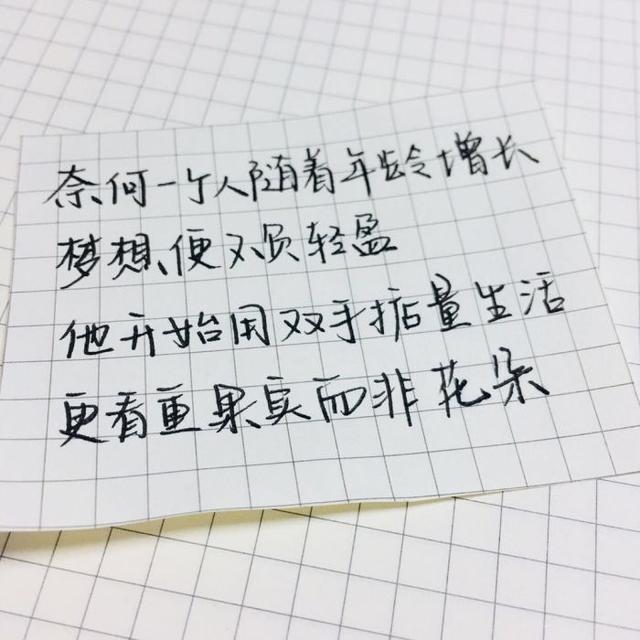 奈何一个人随着年龄增长
梦想便不负轻盈
他开始用双手掂量生活
更看重果实而非花朵